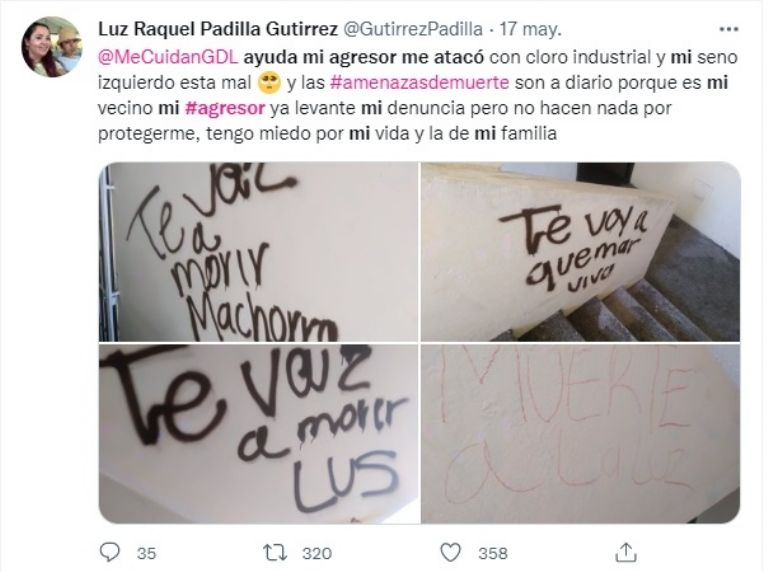 Luz Raquel Padilla Gutirrez @GutirrezPadilla · 17 may.
@MeCuidanGDL ayuda mi agresor me atacó con cloro industrial y mi seno
izquierdo esta mal 🥺 y las #amenazasdemuerte son a diario porque es mi
vecino mi #agresor ya levante mi denuncia pero no hacen nada por
protegerme, tengo miedo por mi vida y la de mi familia
Te vaiz
a
morir
Machorra
Te voy a
quemar
viva
Te vaiz
a morir
LUS
MUERTE
a La Luz
35
320
358